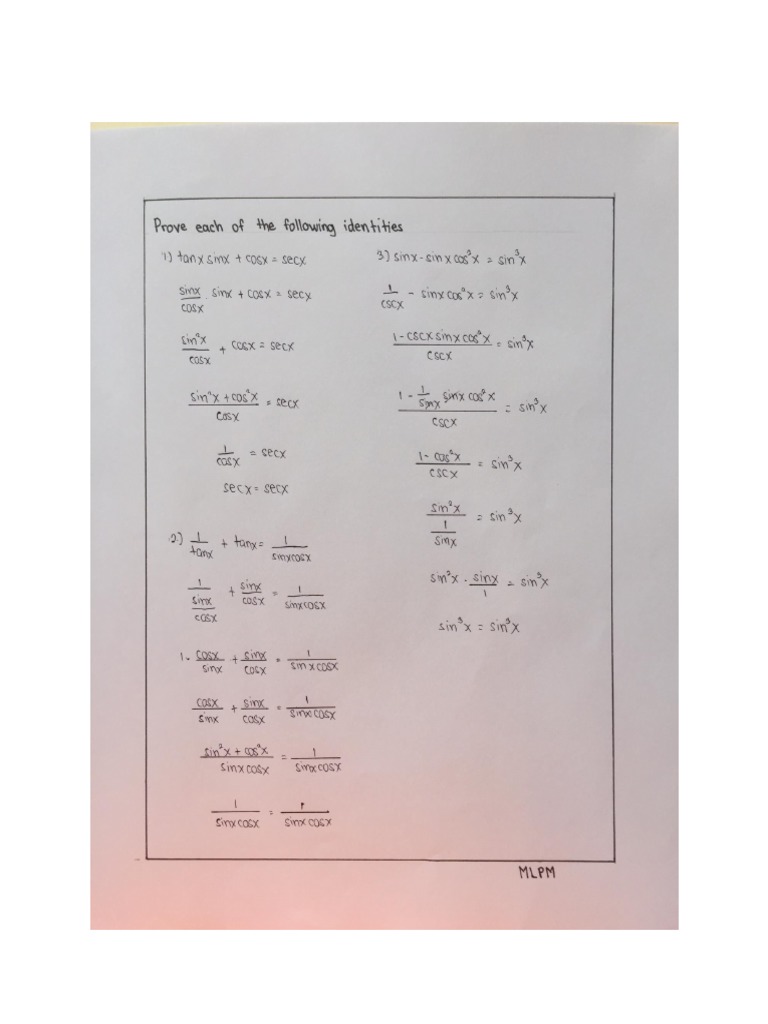 Prove each of the following identities
1) tanx sinx + cosx = secx
sinx/cosx · sinx + cosx = secx
sin²x/cosx + cosx = secx
(sin²x + cos²x)/cosx = secx
1/cosx = secx
secx = secx
2.) 1/tanx + tanx = 1/(sinxcosx)
1/(sinx/cosx) + sinx/cosx = 1/(sinxcosx)
1 · cosx/sinx + sinx/cosx = 1/(sinxcosx)
cosx/sinx + sinx/cosx = 1/(sinxcosx)
(sin²x + cos²x)/(sinxcosx) = 1/(sinxcosx)
1/(sinxcosx) = 1/(sinxcosx)
3) sinx - sinx cos²x = sin³x
1/cscx - sinxcos²x = sin³x
(1 - cscx sinx cos²x)/cscx = sin³x
(1 - 1/sinx sinx cos²x)/cscx = sin³x
(1 - cos²x)/cscx = sin³x
sin²x/(1/sinx) = sin³x
sin²x · sinx/1 = sin³x
sin³x = sin³x
MLPM